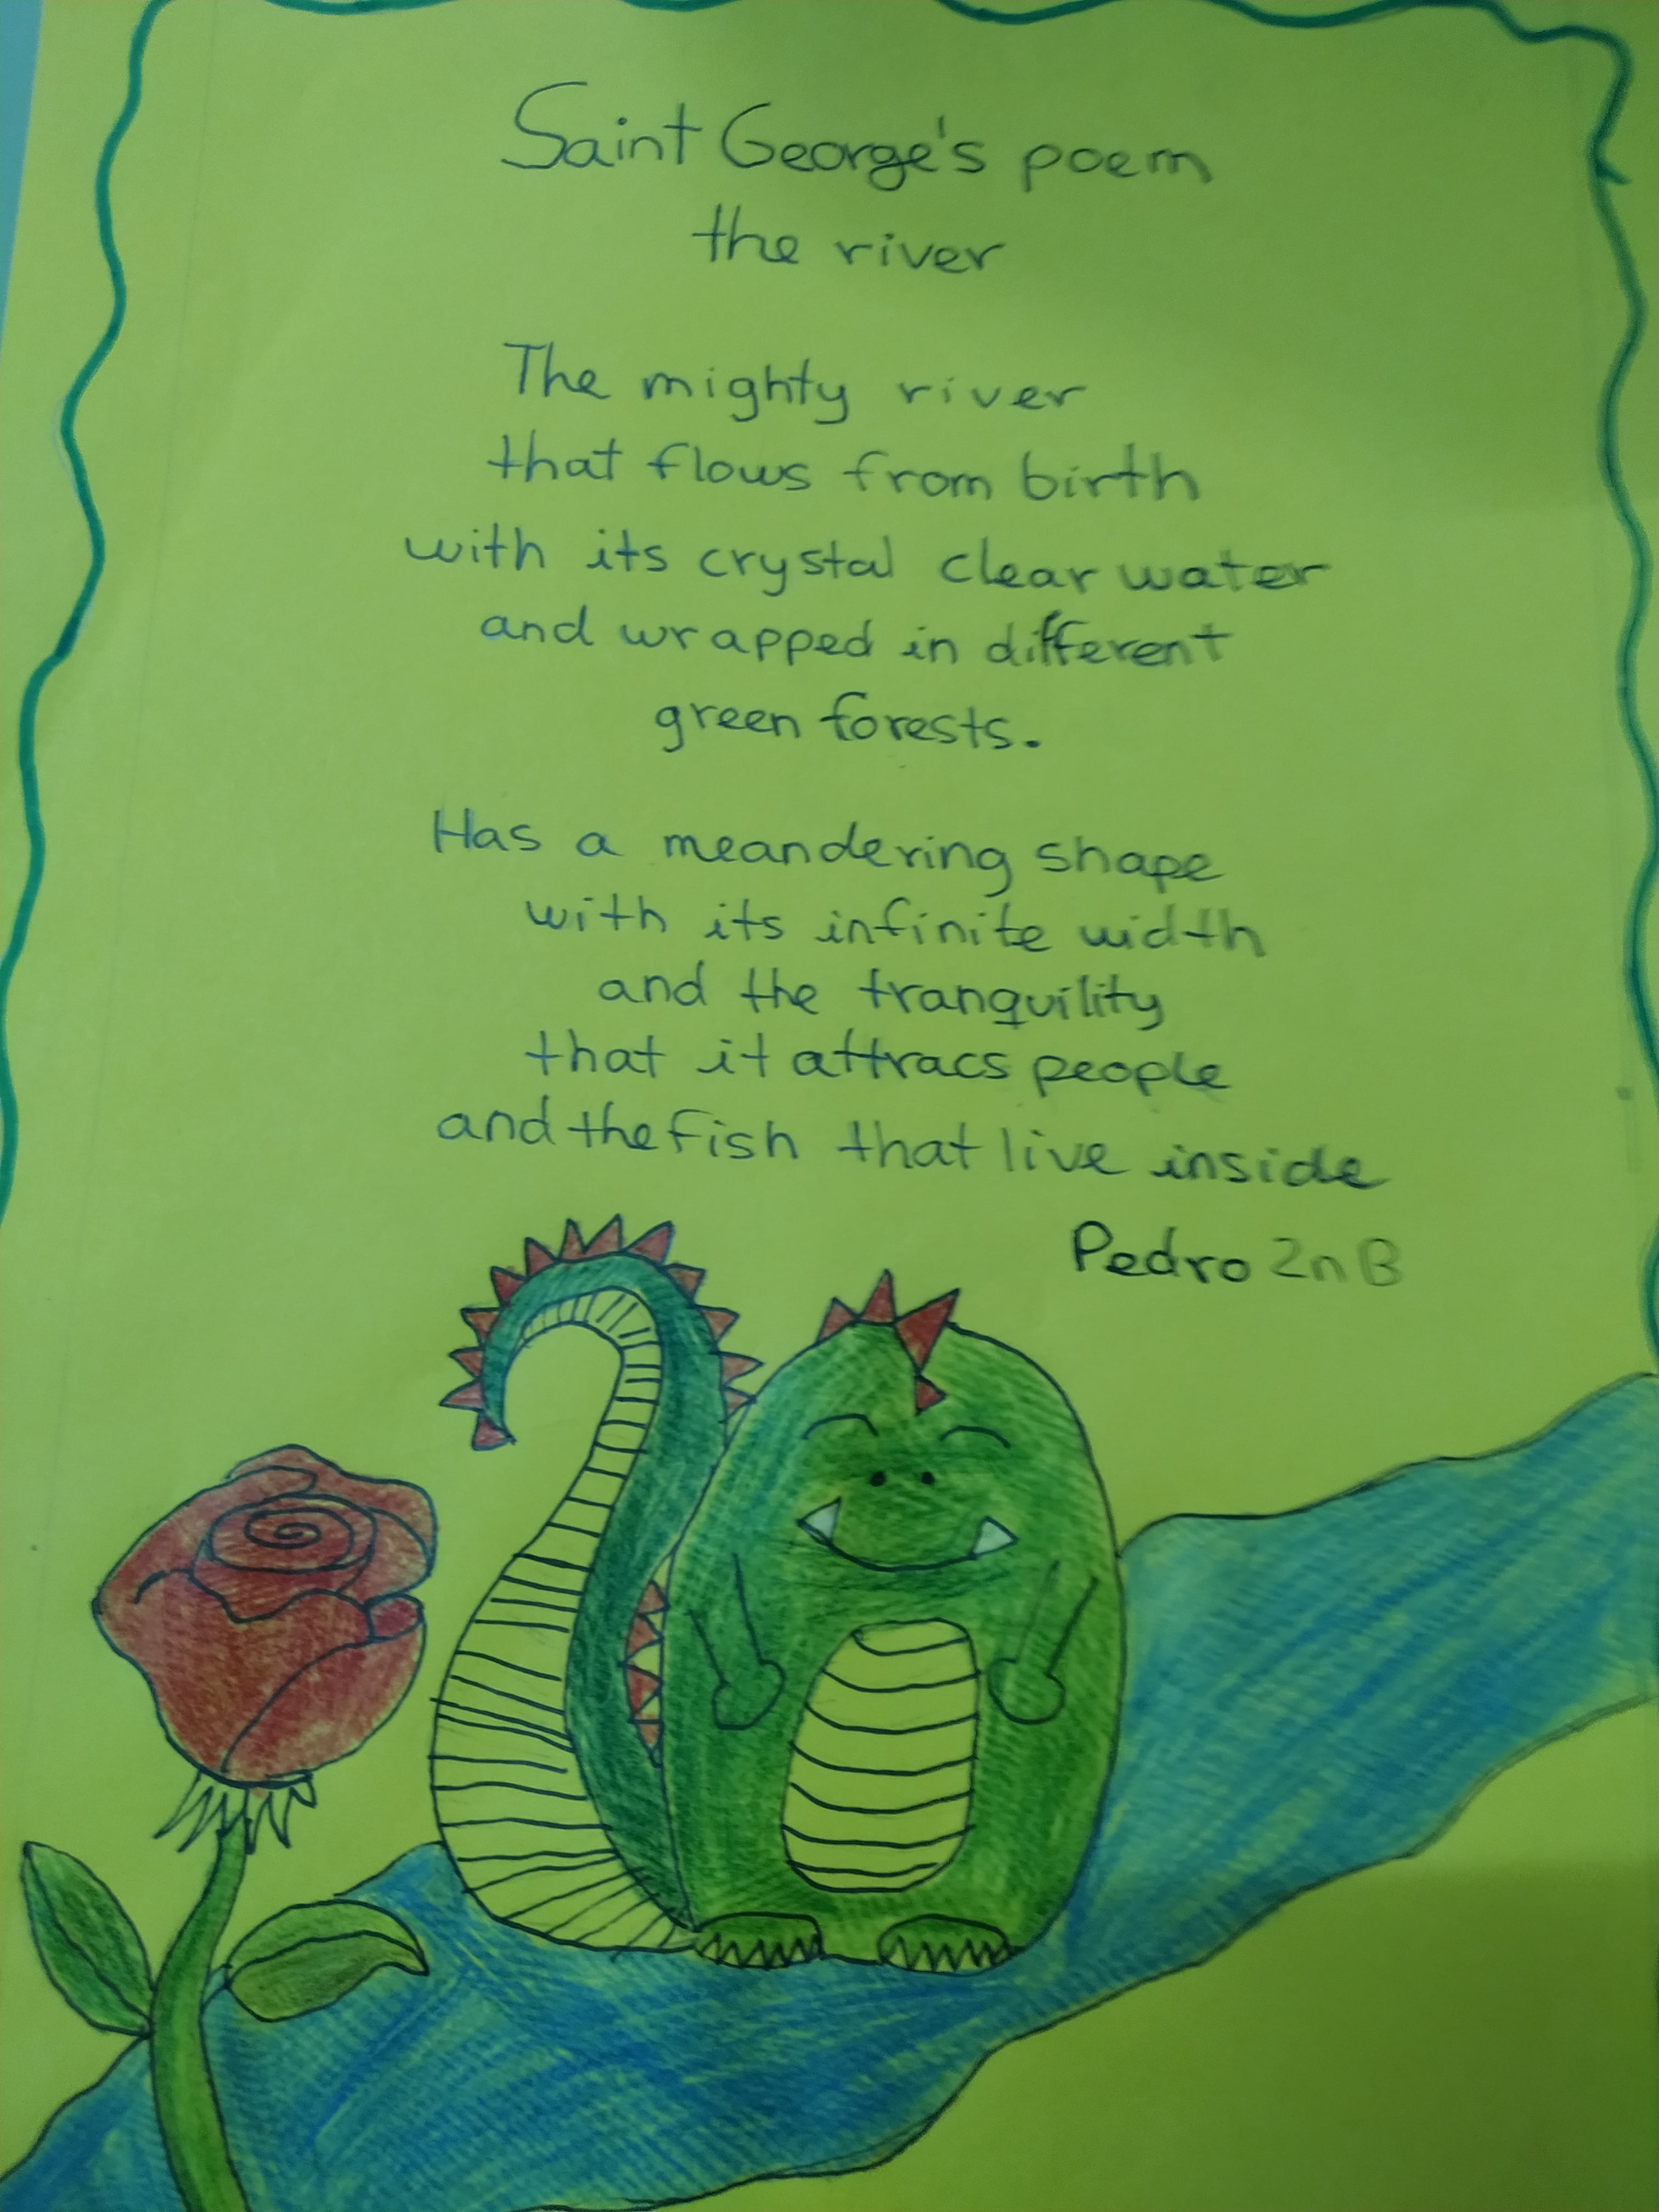 Saint George's poem
the river
The mighty river
that flows from birth
with its crystal clear water
and wrapped in different
green forests.
Has a meandering shape
with its infinite width
and the tranquility
that it attracs people
and the fish that live inside
Pedro 2n B